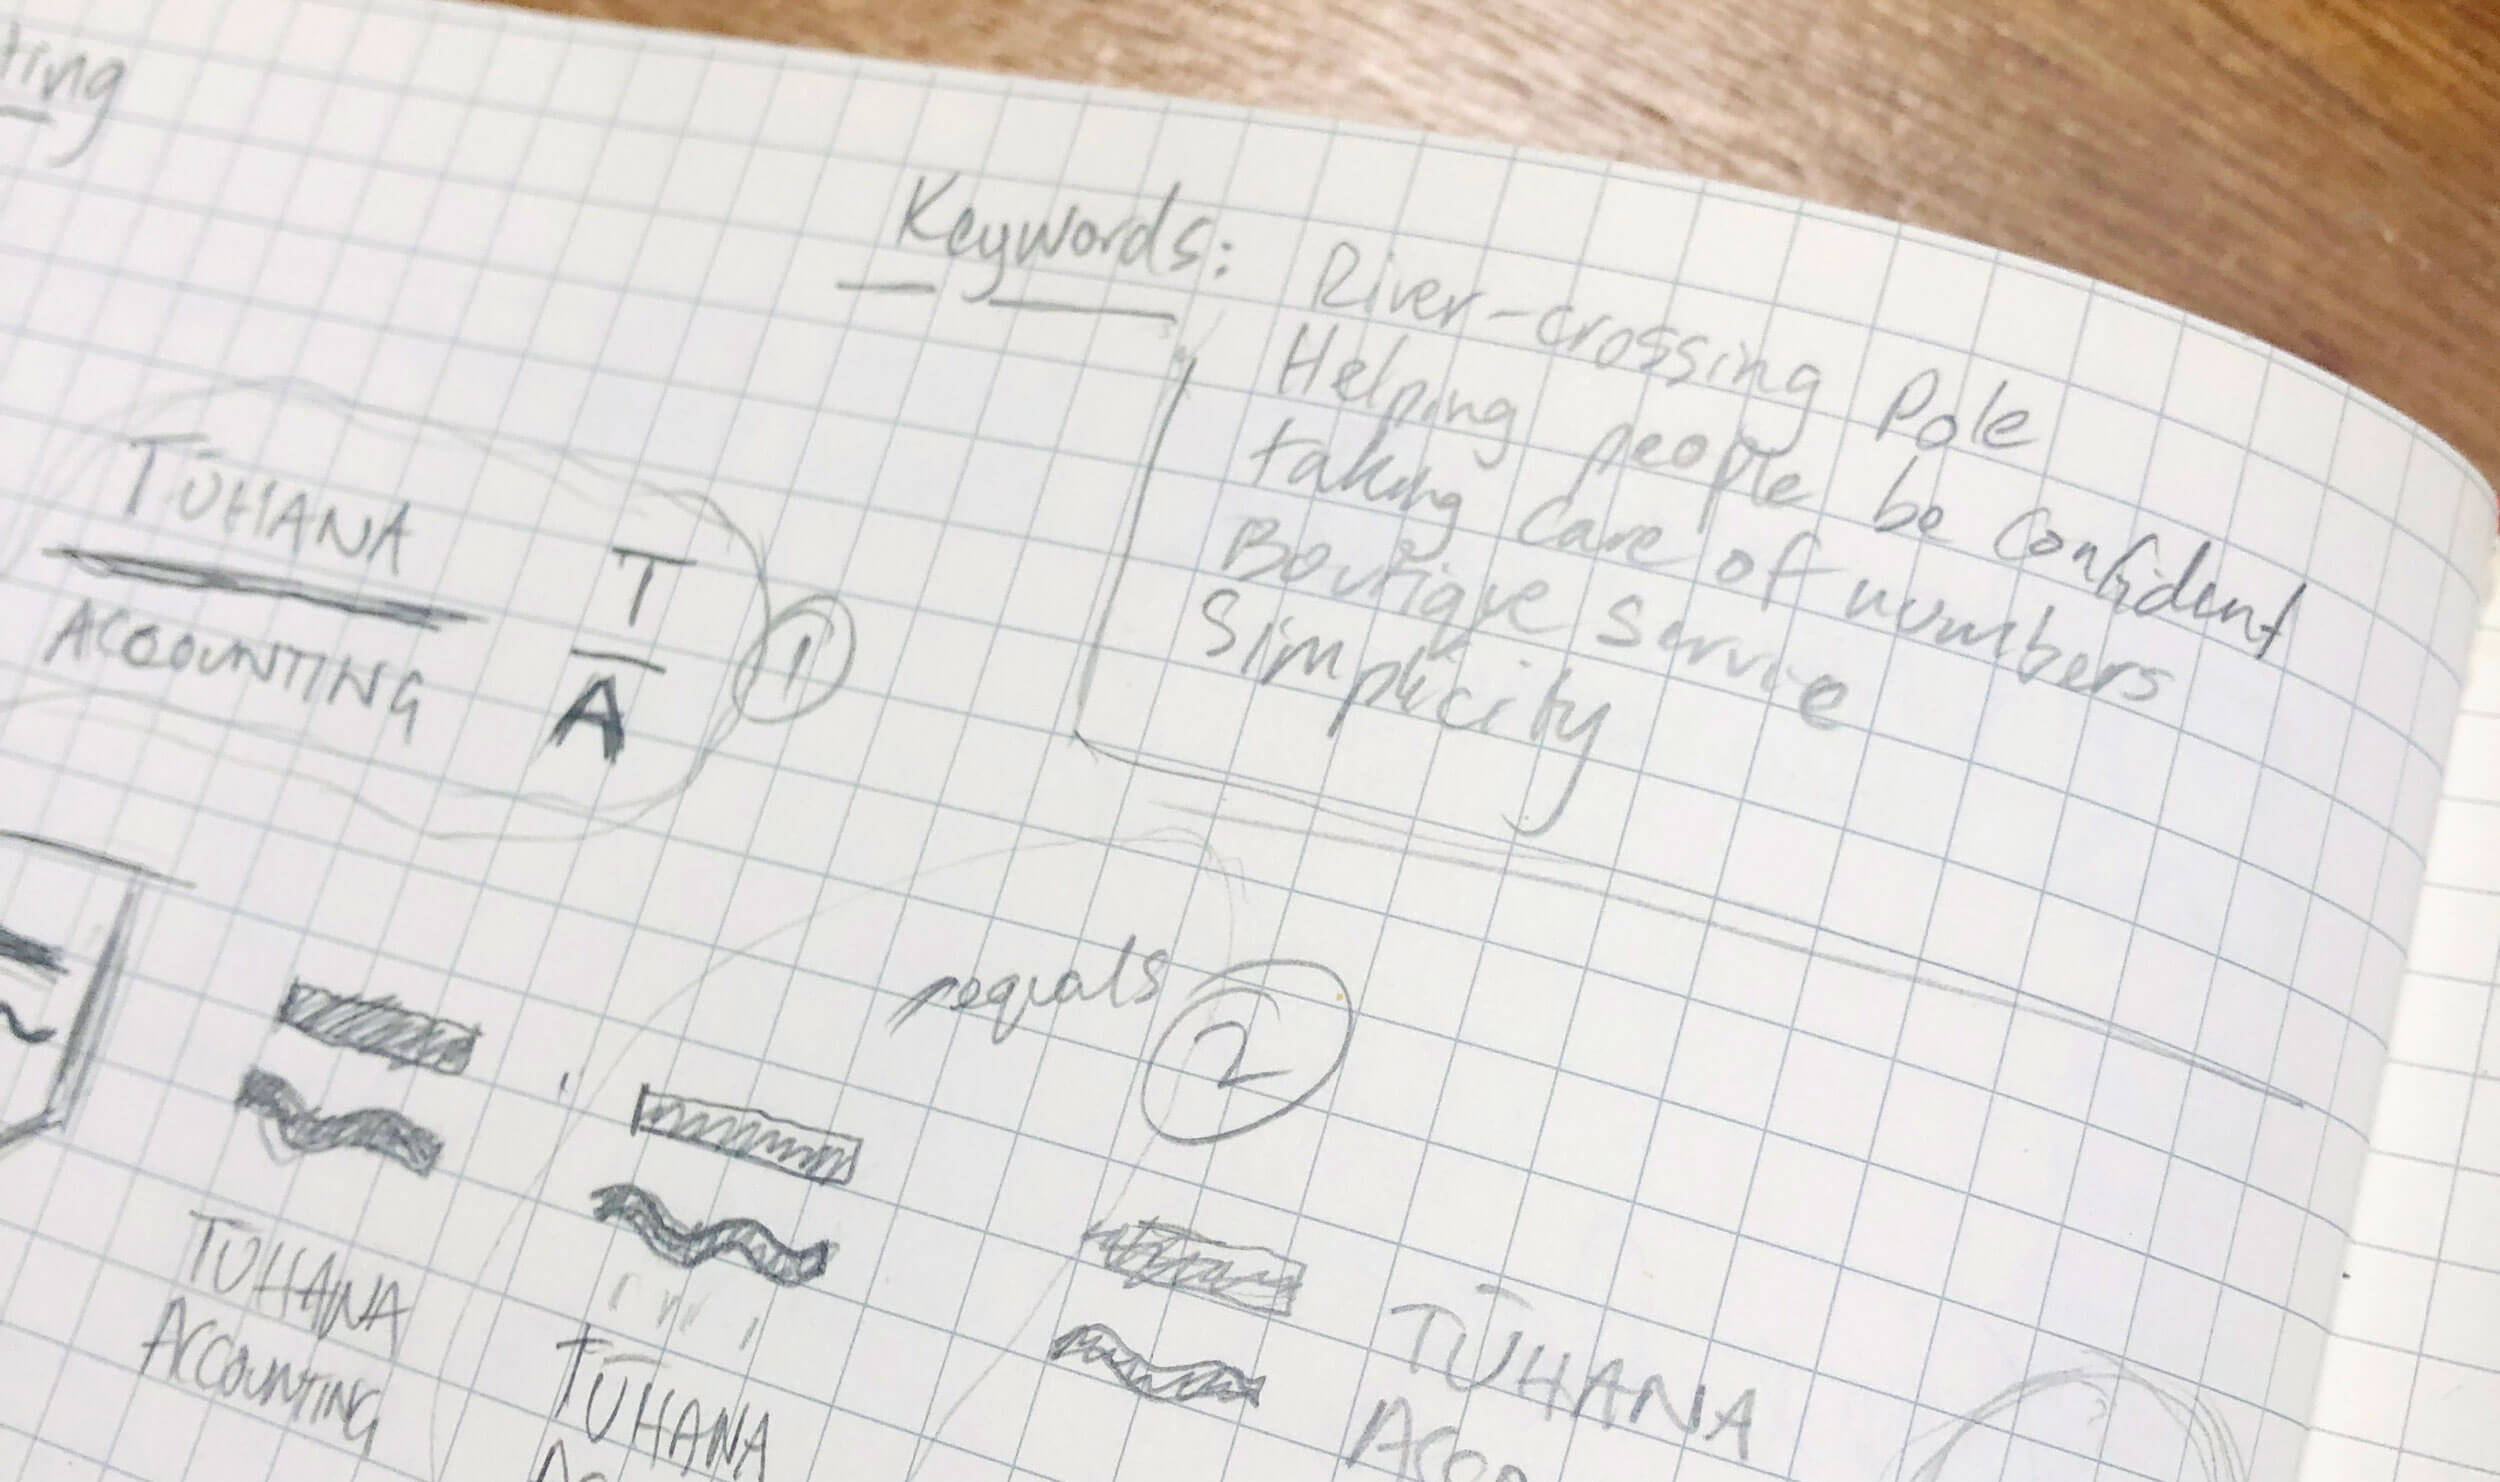 ting
Keywords: River-crossing Pole
Helping people be confident
taking care of numbers
Boutique service
Simplicity
TŪHANA
ACCOUNTING
T
A
1
equals
2
TŪHANA
ACCOUNTING
TŪHANA
Ac
TŪHANA
Acco